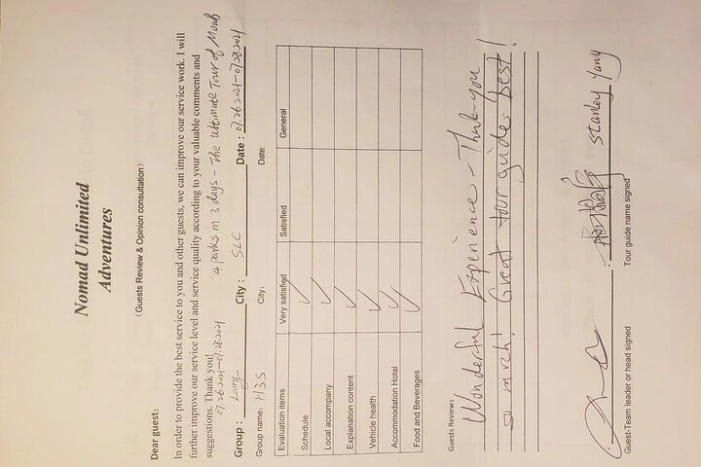 Nomad Unlimited
Adventures
(Guests Review & Opinion consultation)
Dear guest:
In order to provide the best service to you and other guests, we can improve our service work. I will
further improve our service level and service quality according to your valuable comments and
suggestions. Thank you!
07.26.2021-07.28.2021 4 parks in 3 days - The Ultimate Tour of Moab
Group: City: SLC Date: 07.26.2021-07.28.2021
Group name: H3S City: Date:
Evaluation items Very satisfied Satisfied General
Schedule ✓
Local accompany ✓
Explanation content ✓
Vehicle health ✓
Accommodation Hotel ✓
Food and Beverages ✓
Guests Review:
Wonderful Experience - Thank you
so much! Great tour guide - best!
Stanley Yang
Guest-Team leader or head signed Tour guide name signed